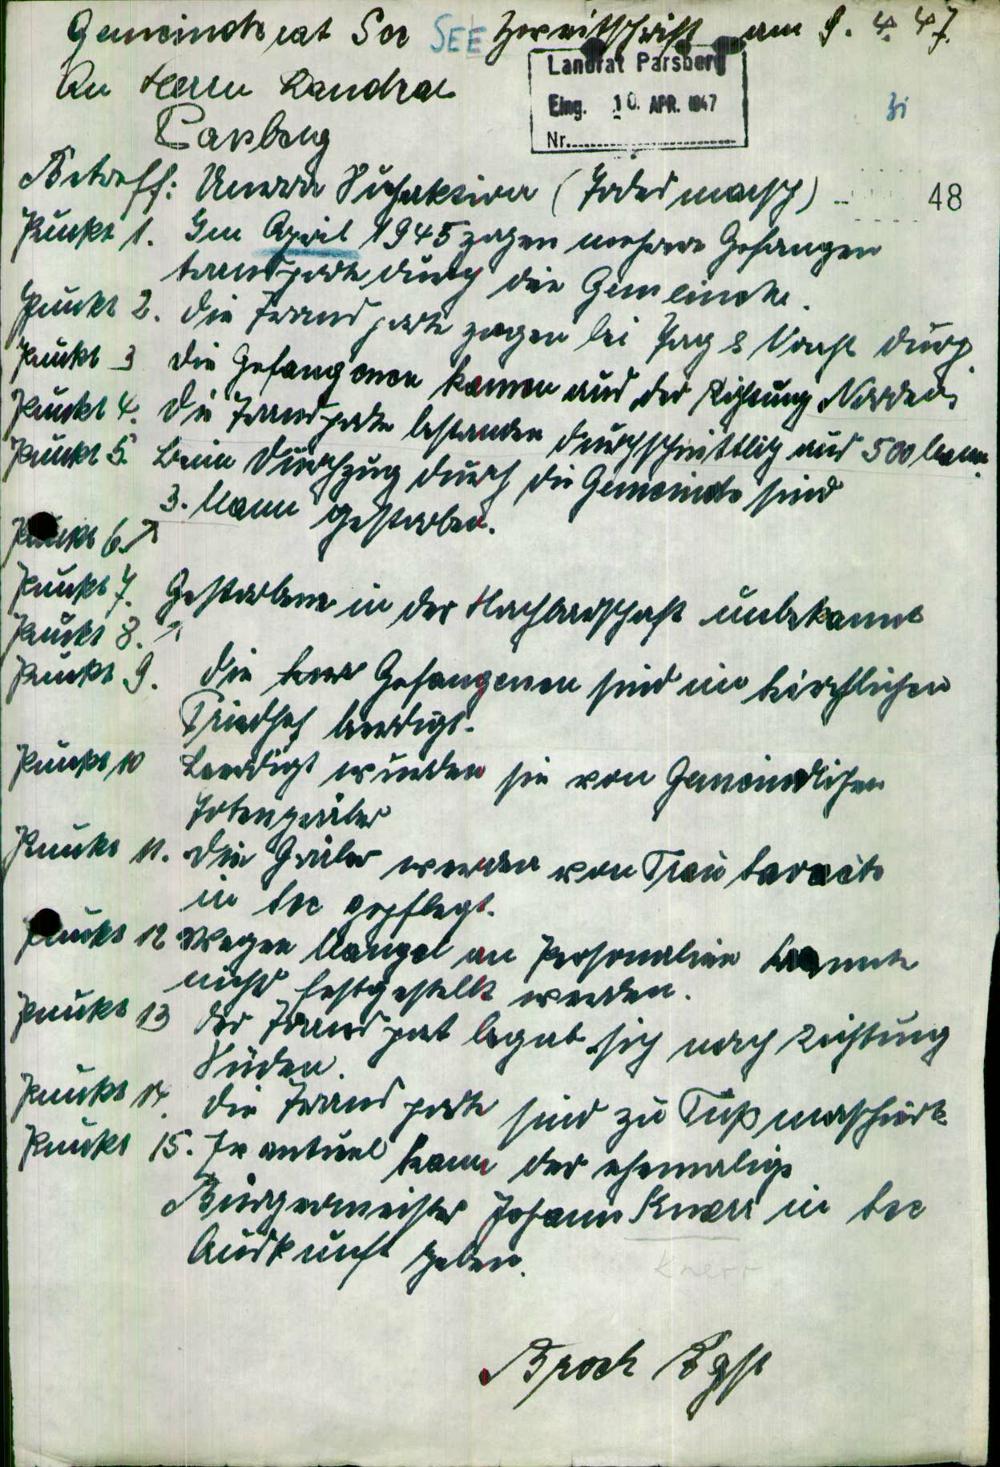 Gemeinderat See SEE Zweitschrift am 9. 4. 47.
An Herrn Landrat
Parsberg
Landrat Parsberg
Eing. 10. APR. 1947
Nr.
Betreff: Unerra Suchaktion (Todesmarsch)
48
Punkt 1. Im April 1945 zogen mehrere Gefangen
transporte durch die Gemeinde.
Punkt 2. Die Transporte zogen bei Tag & Nacht durch.
Punkt 3 Die Gefangenen kamen aus der Richtung Norden
Punkt 4. Die Transporte bestanden durchschnittlich aus 500 Mann.
Punkt 5. Beim Durchzug durch die Gemeinde sind
3. Mann gestorben.
Punkt 6.
Punkt 7. Gestorbene in der Nachbarschaft unbekannt
Punkt 8.
Punkt 9. Die Gefangenen sind im kirchlichen
Friedhof beerdigt.
Punkt 10 Beerdigt wurden sie von Gemeindlichen
Totengräber
Punkt 11. Die Gräber werden von Frau
in See gepflegt.
Punkt 12 Wegen Mangel an Personalien konnte
nichts festgestellt werden.
Punkt 13 Der Transport begab sich nach Richtung
Süden.
Punkt 14. Die Transporte sind zu Fuß marschiert
Punkt 15. Eventuel kann der ehemalige
Bürgermeister Johann Knerr in See
Auskunft geben.
Knerr
Bgst